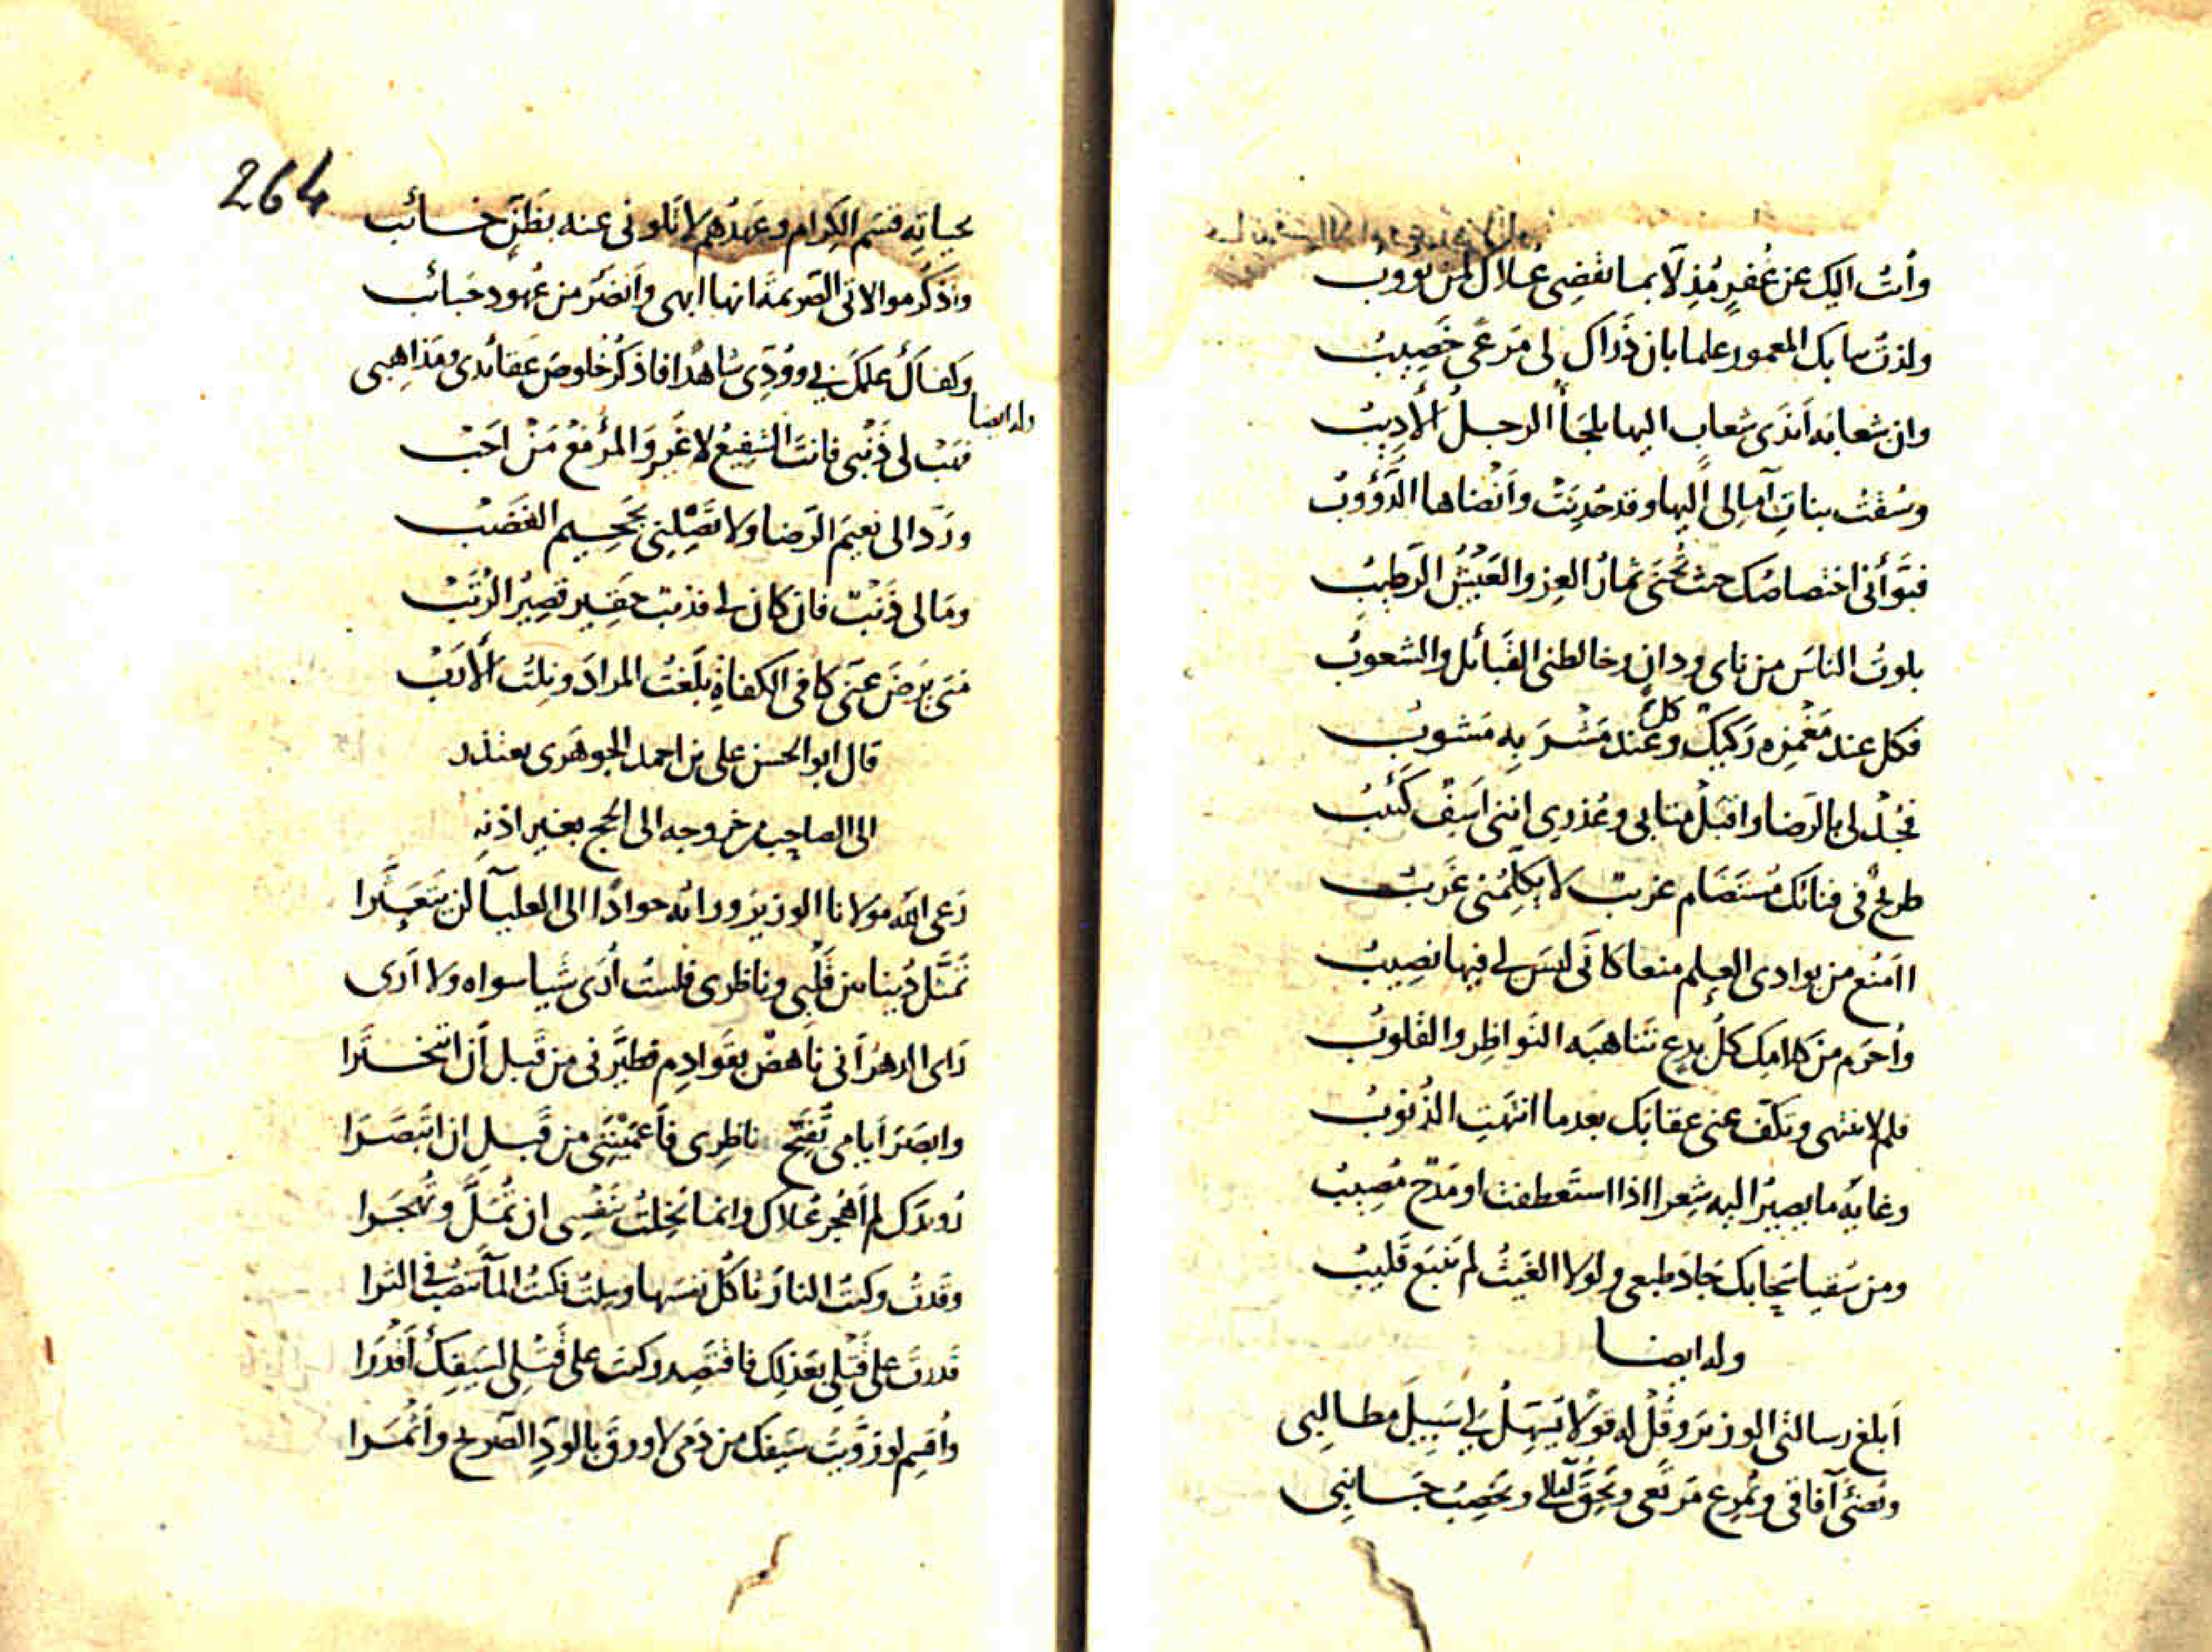 وأبت اليك عن عُفرٍ مُذِلّا بما تقضى عُلاك لمن يووبُ
ولذت ببابك المعمور علما بان ذَراك لى مَرعًى خَصيبُ
وان شعابه أندَى شعابٍ اليها يلجأ الرجلُ الأديبُ
وسُقتُ بناتِ آمالى إليها وقد حُدِيَتْ وأنضاها الدُّؤُوبُ
فبوّأنى اختصاصك حيث تُجنَى ثمارُ العِز والعَيْشُ الرطيبُ
بلوتُ الناسَ من ناىٍ ودانٍ وخالطنى القبائل والشعوبُ
فكل عند مَغْمزِه ركيكٌ وكلٌّ عند مَشْرَبِه مَشوبُ
فجُدْ لى بالرضا واقبَلْ متابى وعُذرى اننى اسِفٌ كئيبُ
طريحٌ فى فنائك مُستضَام غريبٌ لا يكلّمنى غريبُ
اامنَع من بوادى العِلم منعا كانّى ليسَ لى فيها نصيبُ
وأحرَم من كلامِك كلَّ بدعٍ تناهبَه النَّواظِر والقلوبُ
فلِم لا تنتهى وتكفّ عنى عقابَك بعدما انتهَتِ الذُّنوبُ
وغايةُ ما يصيرُ اليه شِعرا اذا استَعطفتَ او مَدْح مُصيبُ
ومن سُقيا سحابك جادَ طبعى ولولا الغَيثُ لم ينبع قَليبُ
وله ايضا
أبلغ رسالتى الوزيرَ وقُلْ له قولا يُسَهِّلُ لى سَبيلَ مطالبى
وتضئ آفاقى ويُمرِع مَرتَعى ويخصِبُ جانبى
بحياتِه قَسَم الكِرام وعَهدهم لا تلونى عنه بظنٍّ خائب
واذكر موالاتى الصريحة انها ابهى وأنضَر من عُهودِ حبائب
وكفاك علمكَ بى وودّى شاهدًا فاذكُر خُلوصَ عَقائدى ومَذاهبى
وله ايضا
فهَبْ لى ذَنْبى فانت الشفيعُ لا غيرَ والمرءُ مَعْ مَنْ احَبْ
ورَدَّ الى نعيم الرضا ولا تُصْلِنى بجحيم الغضَبْ
وما لى ذَنْبٌ فان كان لى فذنب حقير قصيرُ الرُّتَبْ
متى يَرضَ عنّى كافى الكفاةِ بلغتُ المرادَ ونلتُ الأرَبْ
قال ابو الحسن على بن احمد الجوهرى يعتذر
الى الصاحب من خروجه الى الحج بغير اذنه
رَعى الله مولانا الوزيرَ ورأيَه جوادًا الى العليآ لن يتعَثَّرا
تمثّل دُنيا من قلبى وناظرى فلستُ أرى شيا سواه ولا أرَى
رَاى الدهرُ أنى ناهضٌ بقوادمٍ فطيَّرنى من قبل أن اتخيّرا
وابصَرَ أيامى تُفتّح ناظِرى فأعمَيْنَنى من قَبلِ ان اتبَصَّرا
رُويدَك لم أهجر عُلاك وانما بَخِلتُ بنفسى ان تُمَلَّ وتُهجَرا
وقدتَ وكنتَ النارَ تاكل نفسَها وسِلتَ فكنتَ المآ ينصبُّ فى الثرا
قدرتَ على قتلى بعَذلِك فاقتصِد وكنتَ على قتلى لسيفك أقدَرَا
وأُقسم لو رَوَّيتَ سَيفَك من دَمى لاورقَ بالودِّ الصريح وأثمَرا
264